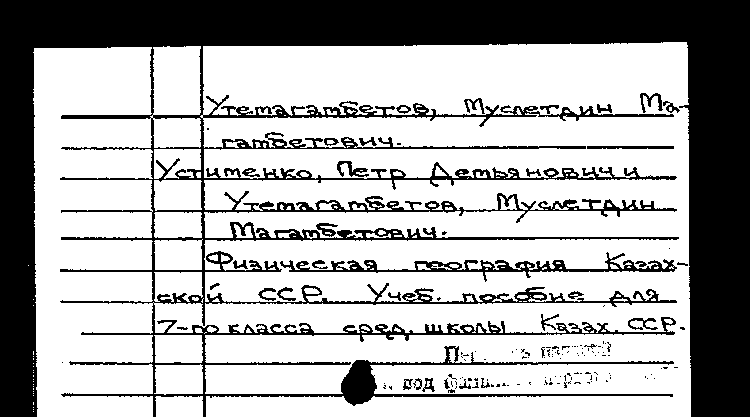 Утемагамбетов, Муслетдин Ма-
гамбетович.
Устименко, Петр Демьянович и
Утемагамбетов, Муслетдин
Магамбетович.
Физическая география Казах-
ской ССР. Учеб. пособие для
7-го класса сред. школы Казах. ССР.
под